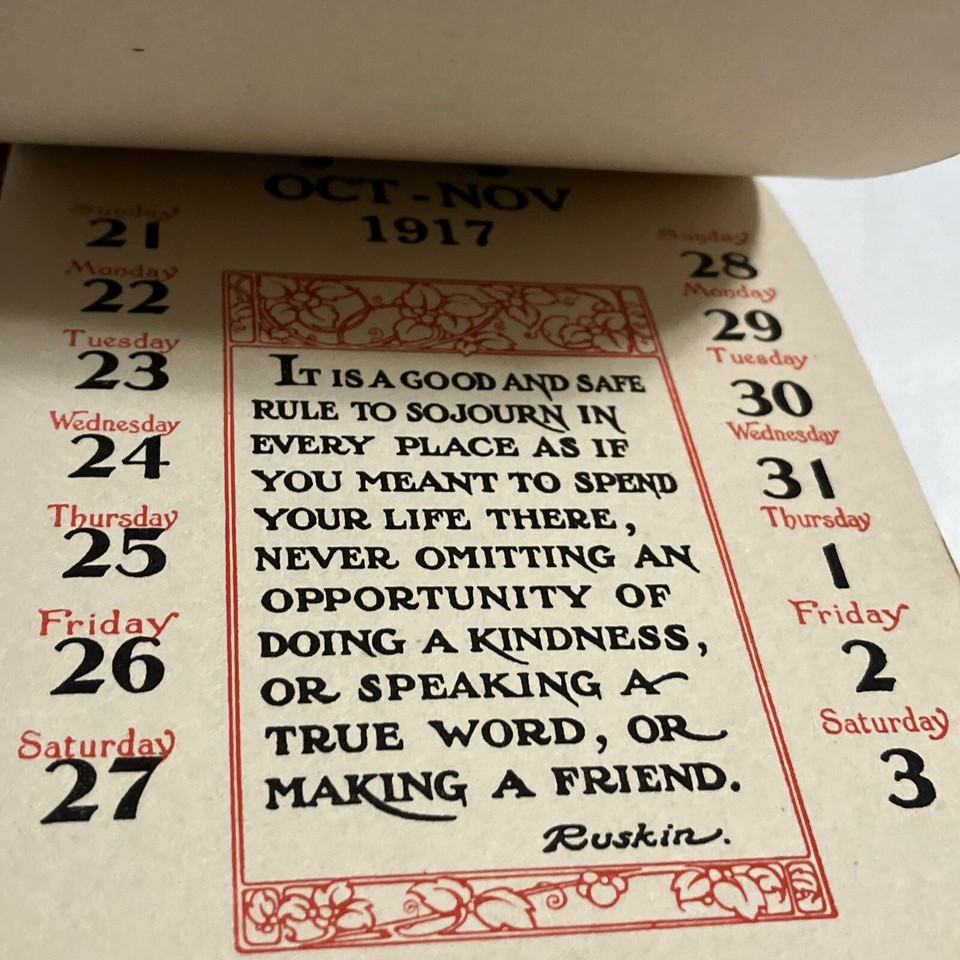 OCT - NOV
1917
Sunday
21
Monday
22
Tuesday
23
Wednesday
24
Thursday
25
Friday
26
Saturday
27
IT IS A GOOD AND SAFE
RULE TO SOJOURN IN
EVERY PLACE AS IF
YOU MEANT TO SPEND
YOUR LIFE THERE,
NEVER OMITTING AN
OPPORTUNITY OF
DOING A KINDNESS,
OR SPEAKING A
TRUE WORD, OR
MAKING A FRIEND.
Ruskin.
Sunday
28
Monday
29
Tuesday
30
Wednesday
31
Thursday
1
Friday
2
Saturday
3